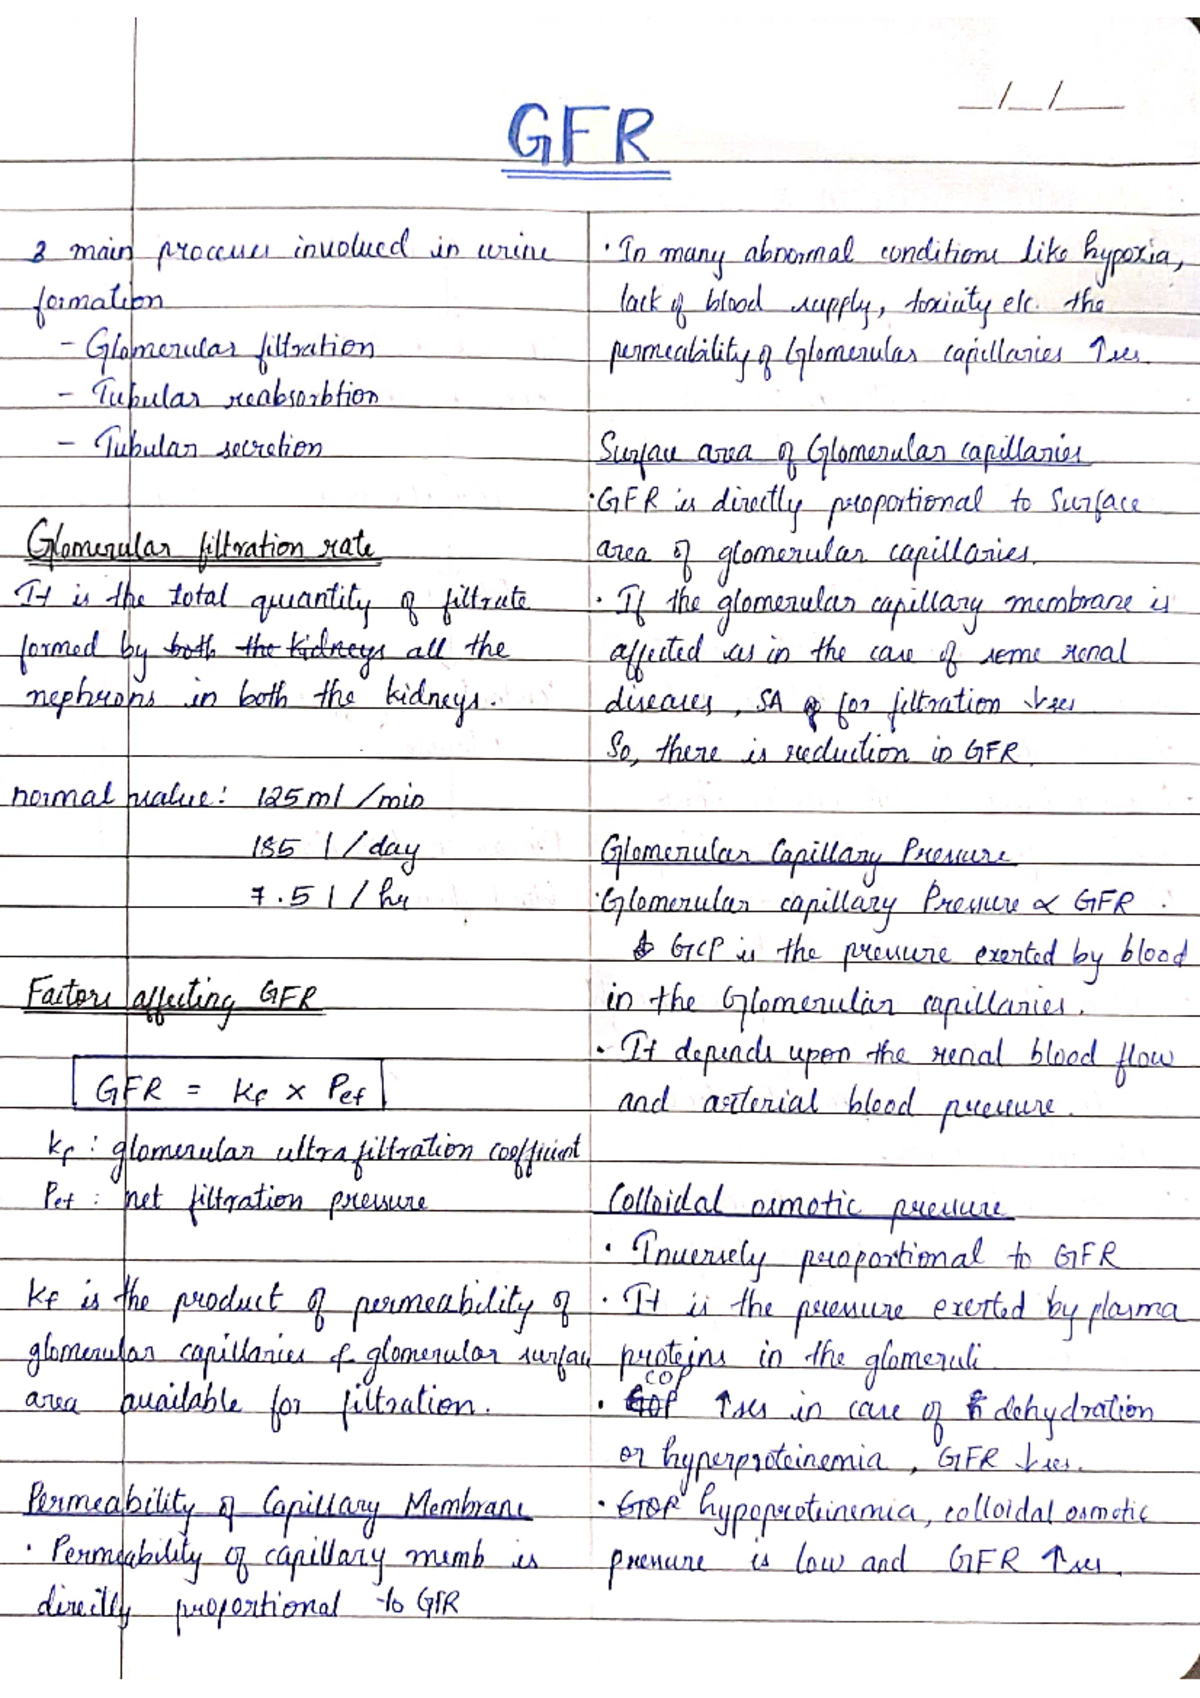 _/_/__
GFR
3 main processes involved in urine
formation
- Glomerular filtration
- Tubular reabsorbtion
- Tubular secretion
Glomerular filtration rate
It is the total quantity of filtrate
formed by both the kidneys all the
nephrons in both the kidneys.
normal value: 125 ml /min
185 l / day
7.5 l / hr
Factors affecting GFR
GFR = Kf x Pef
Kf : glomerular ultrafiltration coefficient
Pef : net filtration pressure
Kf is the product of permeability of
glomerular capillaries & glomerular surface
area available for filtration.
Permeability of Capillary Membrane
· Permeability of capillary memb is
directly proportional to GFR
· In many abnormal conditions like hypoxia,
lack of blood supply, toxicity etc. the
permeability of Glomerular capillaries ↑ses.
Surface area of Glomerular capillaries
· GFR is directly proportional to Surface
area of glomerular capillaries.
· If the glomerular capillary membrane is
affected as in the case of some renal
diseases, SA for filtration ↓ses
So, there is reduction in GFR.
Glomerular Capillary Pressure
· Glomerular capillary Pressure ∝ GFR .
GCP is the pressure exerted by blood
in the Glomerular capillaries.
· It depends upon the renal blood flow
and arterial blood pressure.
Colloidal osmotic pressure
· Inversely proportional to GFR
· It is the pressure exerted by plasma
proteins in the glomeruli.
· COP ↑ses in case of dehydration
or hyperproteinemia, GFR ↓ses.
· hypoproteinemia, colloidal osmotic
pressure is low and GFR ↑ses.